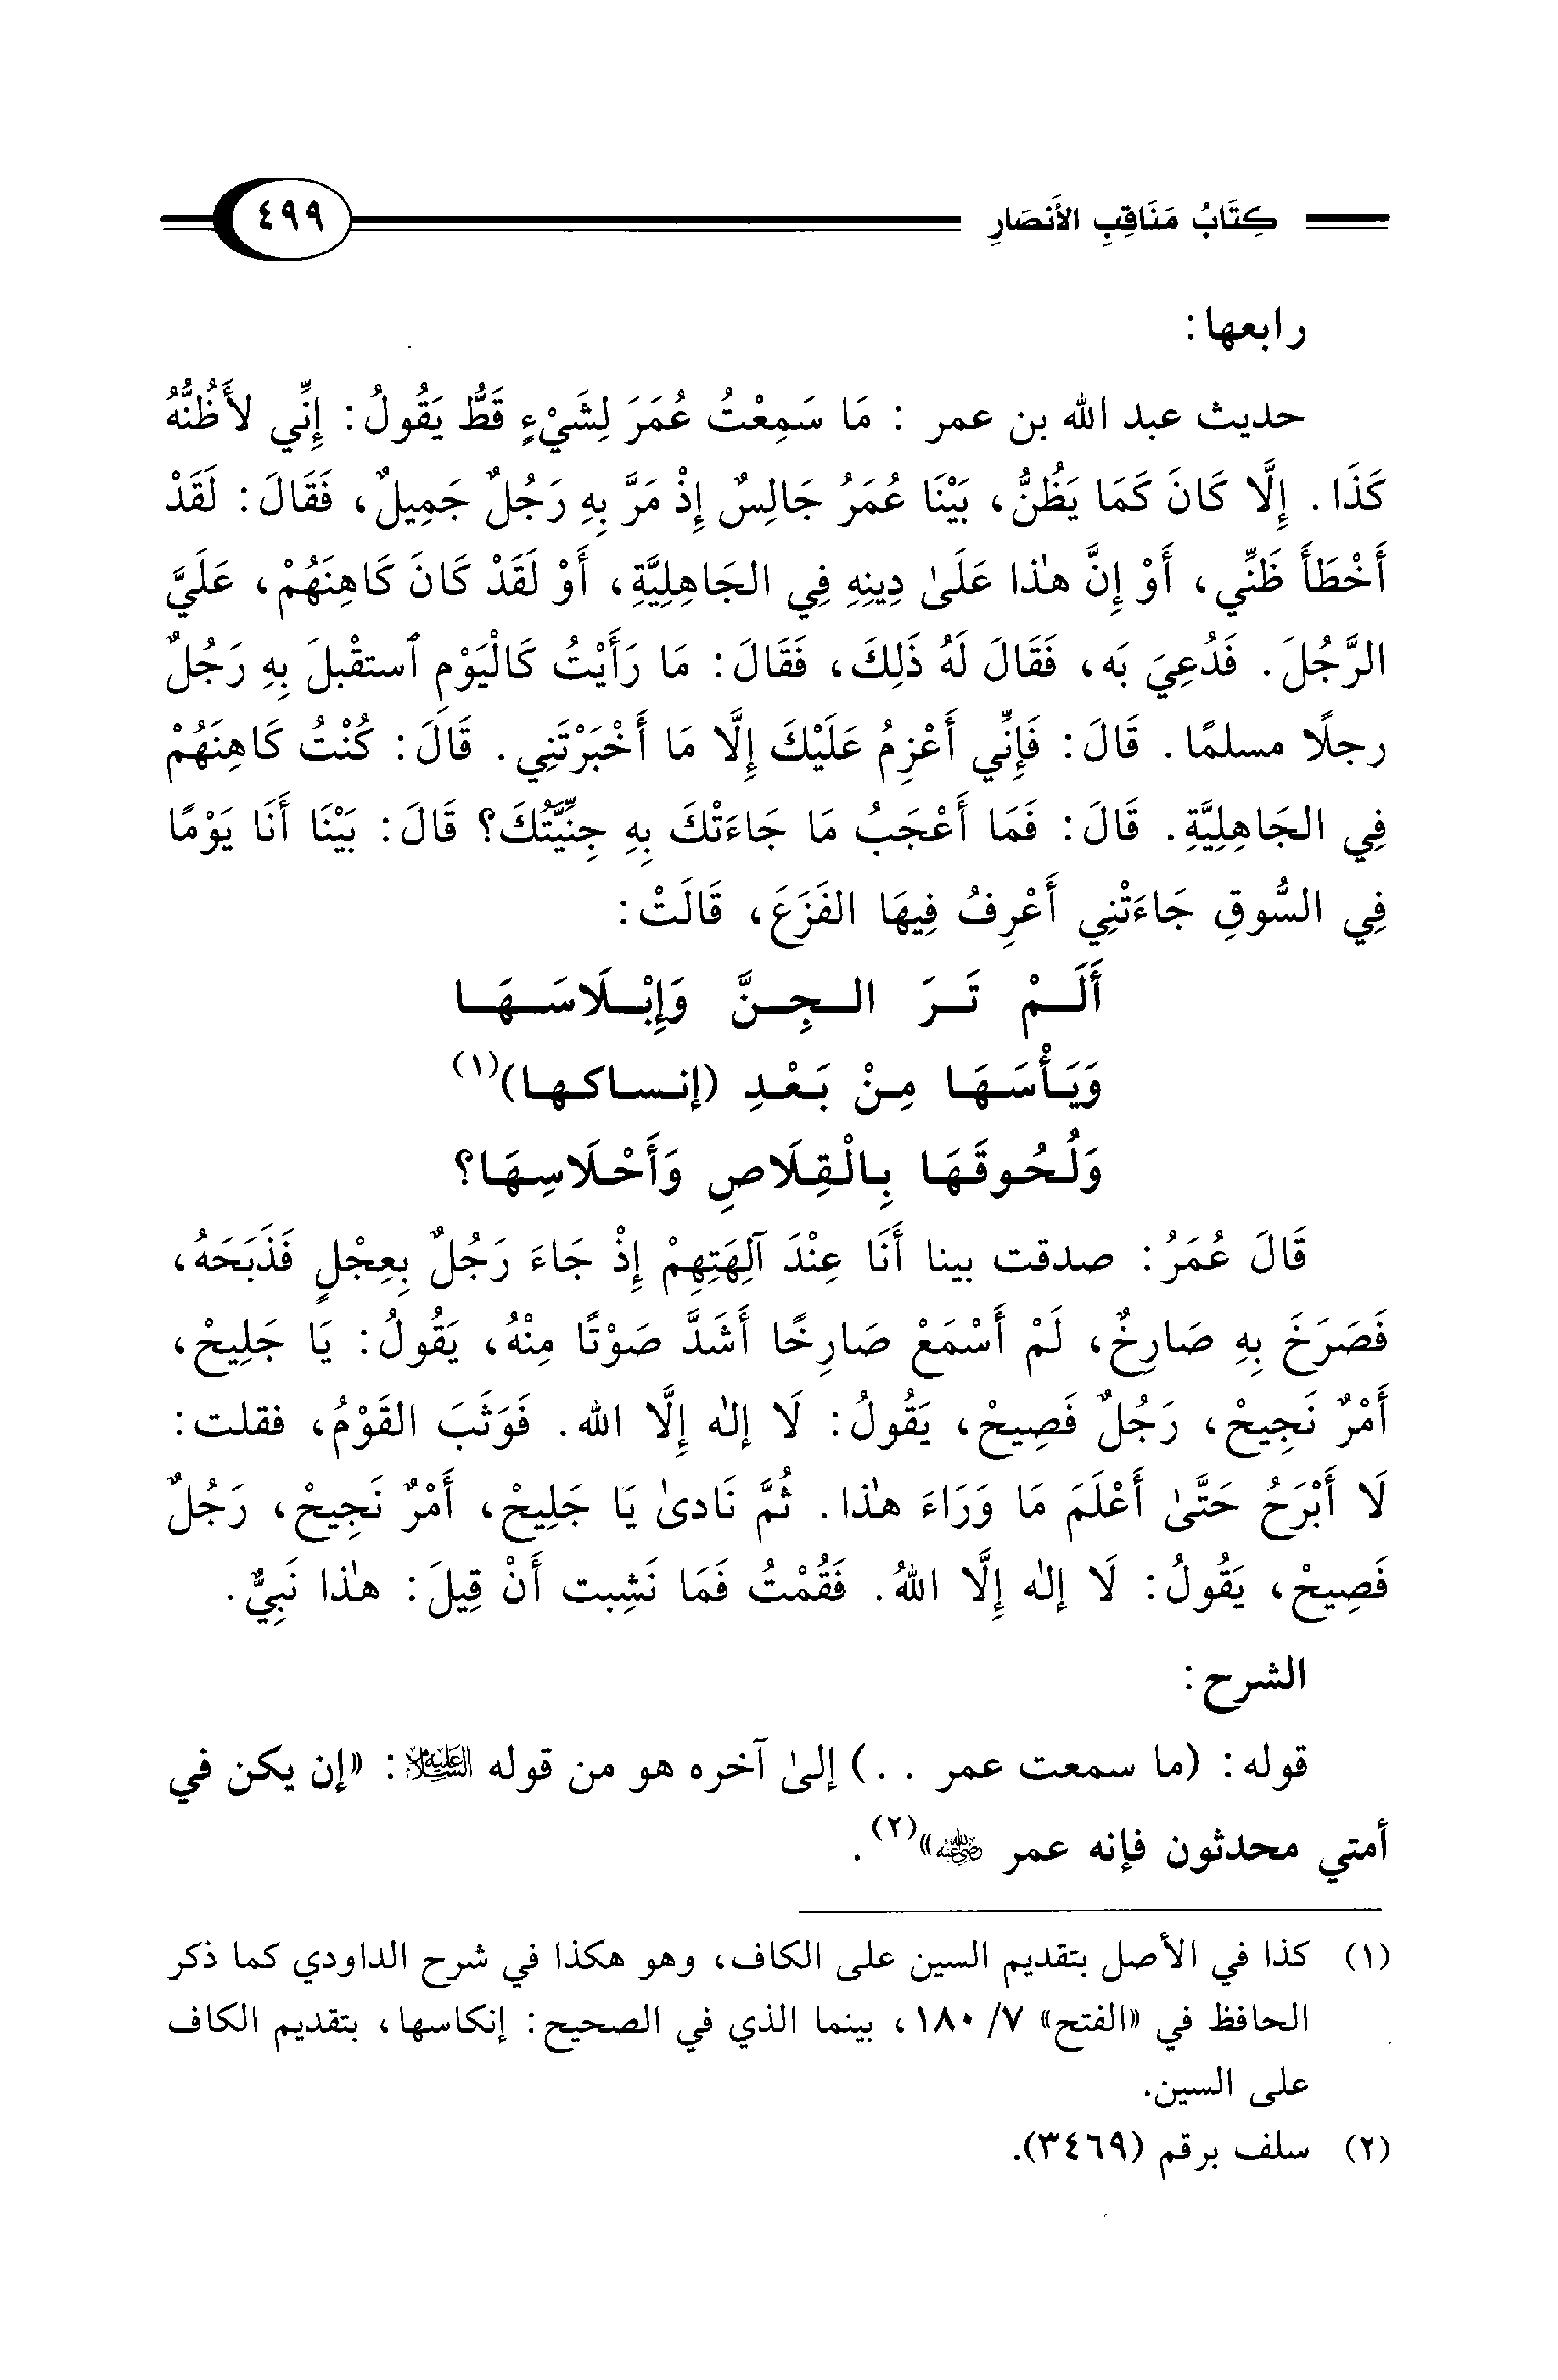 كِتَابُ مَنَاقِبِ الأَنصَارِ ٤٩٩
رابعها:
حديث عبد الله بن عمر : مَا سَمِعْتُ عُمَرَ لِشَيْءٍ قَطُّ يَقُولُ: إِنِّي لأَظُنُّهُ
كَذَا. إِلَّا كَانَ كَمَا يَظُنُّ، بَيْنَا عُمَرُ جَالِسٌ إِذْ مَرَّ بِهِ رَجُلٌ جَمِيلٌ، فَقَالَ: لَقَدْ
أَخْطَأَ ظَنِّي، أَوْ إِنَّ هٰذا عَلَىٰ دِينِهِ فِي الجَاهِلِيَّةِ، أَوْ لَقَدْ كَانَ كَاهِنَهُمْ، عَلَيَّ
الرَّجُلَ. فَدُعِيَ بَه، فَقَالَ لَهُ ذَلِكَ، فَقَالَ: مَا رَأَيْتُ كَالْيَوْمِ ٱستقْبلَ بِهِ رَجُلٌ
رجلًا مسلمًا. قَالَ: فَإِنِّي أَعْزِمُ عَلَيْكَ إِلَّا مَا أَخْبَرْتَنِي. قَالَ: كُنْتُ كَاهِنَهُمْ
فِي الجَاهِلِيَّةِ. قَالَ: فَمَا أَعْجَبُ مَا جَاءَتْكَ بِهِ جِنِّيَّتُكَ؟ قَالَ: بَيْنَا أَنَا يَوْمًا
فِي السُّوقِ جَاءَتْنِي أَعْرِفُ فِيهَا الفَزَعَ، قَالَتْ:
أَلَـمْ تَـرَ الـجِـنَّ وَإِبْـلَاسَـهَـا
وَيَـأْسَـهَـا مِـنْ بَـعْـدِ (إنـسـاكـهـا)(١)
وَلُـحُـوقَـهَـا بِـالْـقِـلَاصِ وَأَحْـلَاسِـهَـا؟
قَالَ عُمَرُ: صدقت بينا أَنَا عِنْدَ آلِهَتِهِمْ إِذْ جَاءَ رَجُلٌ بِعِجْلٍ فَذَبَحَهُ،
فَصَرَخَ بِهِ صَارِخٌ، لَمْ أَسْمَعْ صَارِخًا أَشَدَّ صَوْتًا مِنْهُ، يَقُولُ: يَا جَلِيحْ،
أَمْرٌ نَجِيحْ، رَجُلٌ فَصِيحْ، يَقُولُ: لَا إلٰه إِلَّا الله. فَوَثَبَ القَوْمُ، فقلت:
لَا أَبْرَحُ حَتَّىٰ أَعْلَمَ مَا وَرَاءَ هٰذا. ثُمَّ نَادىٰ يَا جَلِيحْ، أَمْرٌ نَجِيحْ، رَجُلٌ
فَصِيحْ، يَقُولُ: لَا إلٰه إِلَّا اللهُ. فَقُمْتُ فَمَا نَشِبت أَنْ قِيلَ: هٰذا نَبِيٌّ.
الشرح:
قوله: (ما سمعت عمر . .) إلىٰ آخره هو من قوله عليه السلام: «إن يكن في
أمتي محدثون فإنه عمر رضي الله عنه»(٢).
(١) كذا في الأصل بتقديم السين على الكاف، وهو هكذا في شرح الداودي كما ذكر
الحافظ في «الفتح» ٧/ ١٨٠، بينما الذي في الصحيح: إنكاسها، بتقديم الكاف
على السين.
(٢) سلف برقم (٣٤٦٩).